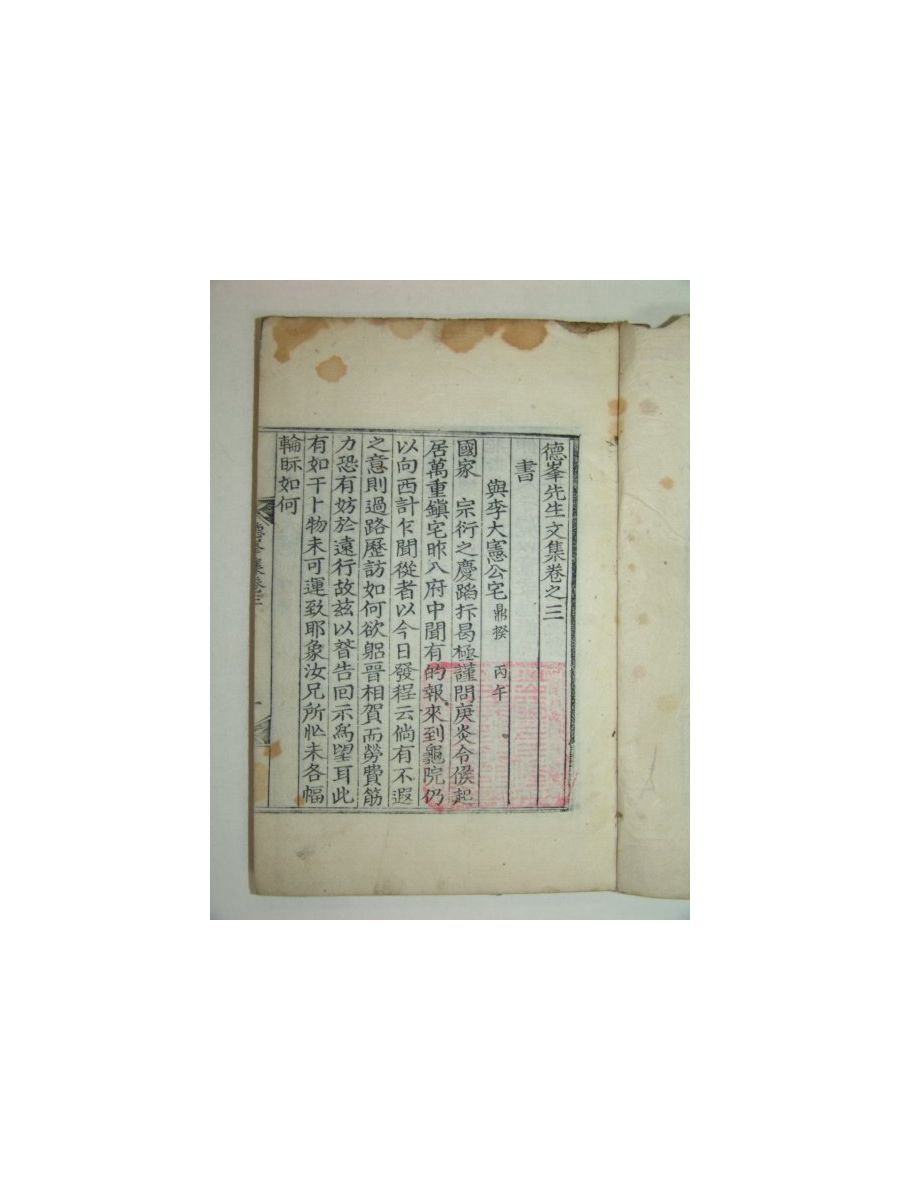 德峯先生文集卷之三
書
與李大憲公宅 鼎揆 丙午
國家 宗衍之慶蹈抃曷極謹問庚炎令候起
居萬重鎭宅昨入府中聞有的報來到龜院仍
以向西計乍聞從者以今日發程云倘有不遐
之意則過路歷訪如何欲躬晉相賀而勞費筋
力恐有妨於遠行故玆以替告回示爲望耳此
有如干卜物未可運致耶象汝兄所忙未各幅
輪眎如何